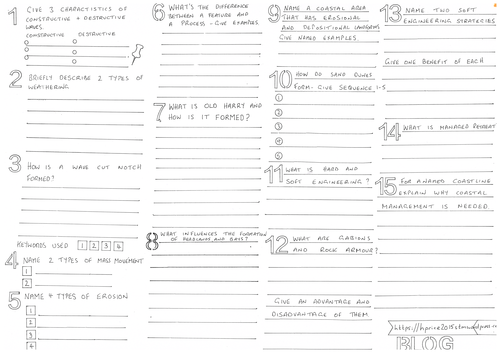 1 GIVE 3 CHARACTISTICS OF
CONSTRUCTIVE + DESTRUCTIVE
WAVES.
CONSTRUCTIVE DESTRUCTIVE
2 BRIEFLY DESCRIBE 2 TYPES OF
WEATHERING
3
HOW IS A WAVE CUT NOTCH
FORMED?
KEYWORDS USED 1 2 3 4
4 NAME 2 TYPES OF MASS MOVEMENT
1
2
5 NAME 4 TYPES OF EROSION
1
2
3
4
6 WHAT'S THE DIFFERENCE
BETWEEN A FEATURE AND
A PROCESS - GIVE EXAMPLES
7 WHAT IS OLD HARRY AND
HOW IS IT FORMED?
8 WHAT INFLUENCES THE FORMATION
OF HEADLANDS AND BAYS?
9 NAME A COASTAL AREA
THAT HAS EROSIONAL
AND DEPOSITIONAL LANDFORMS
GIVE NAMED EXAMPLES.
10 HOW DO SAND DUNES
FORM - GIVE SEQUENCE 1-5
1
2
3
4
5
11 WHAT IS HARD AND
SOFT ENGINEERING?
12 WHAT ARE GABIONS
AND ROCK ARMOUR?
GIVE AN ADVANTAGE AND
DISADVANTAGE OF THEM.
13 NAME TWO SOFT
ENGINEERING STRATEGIES
GIVE ONE BENEFIT OF EACH
14 WHAT IS MANAGED RETREAT
15 FOR A NAMED COASTLINE
EXPLAIN WHY COASTAL
MANAGEMENT IS NEEDED.
BLOG